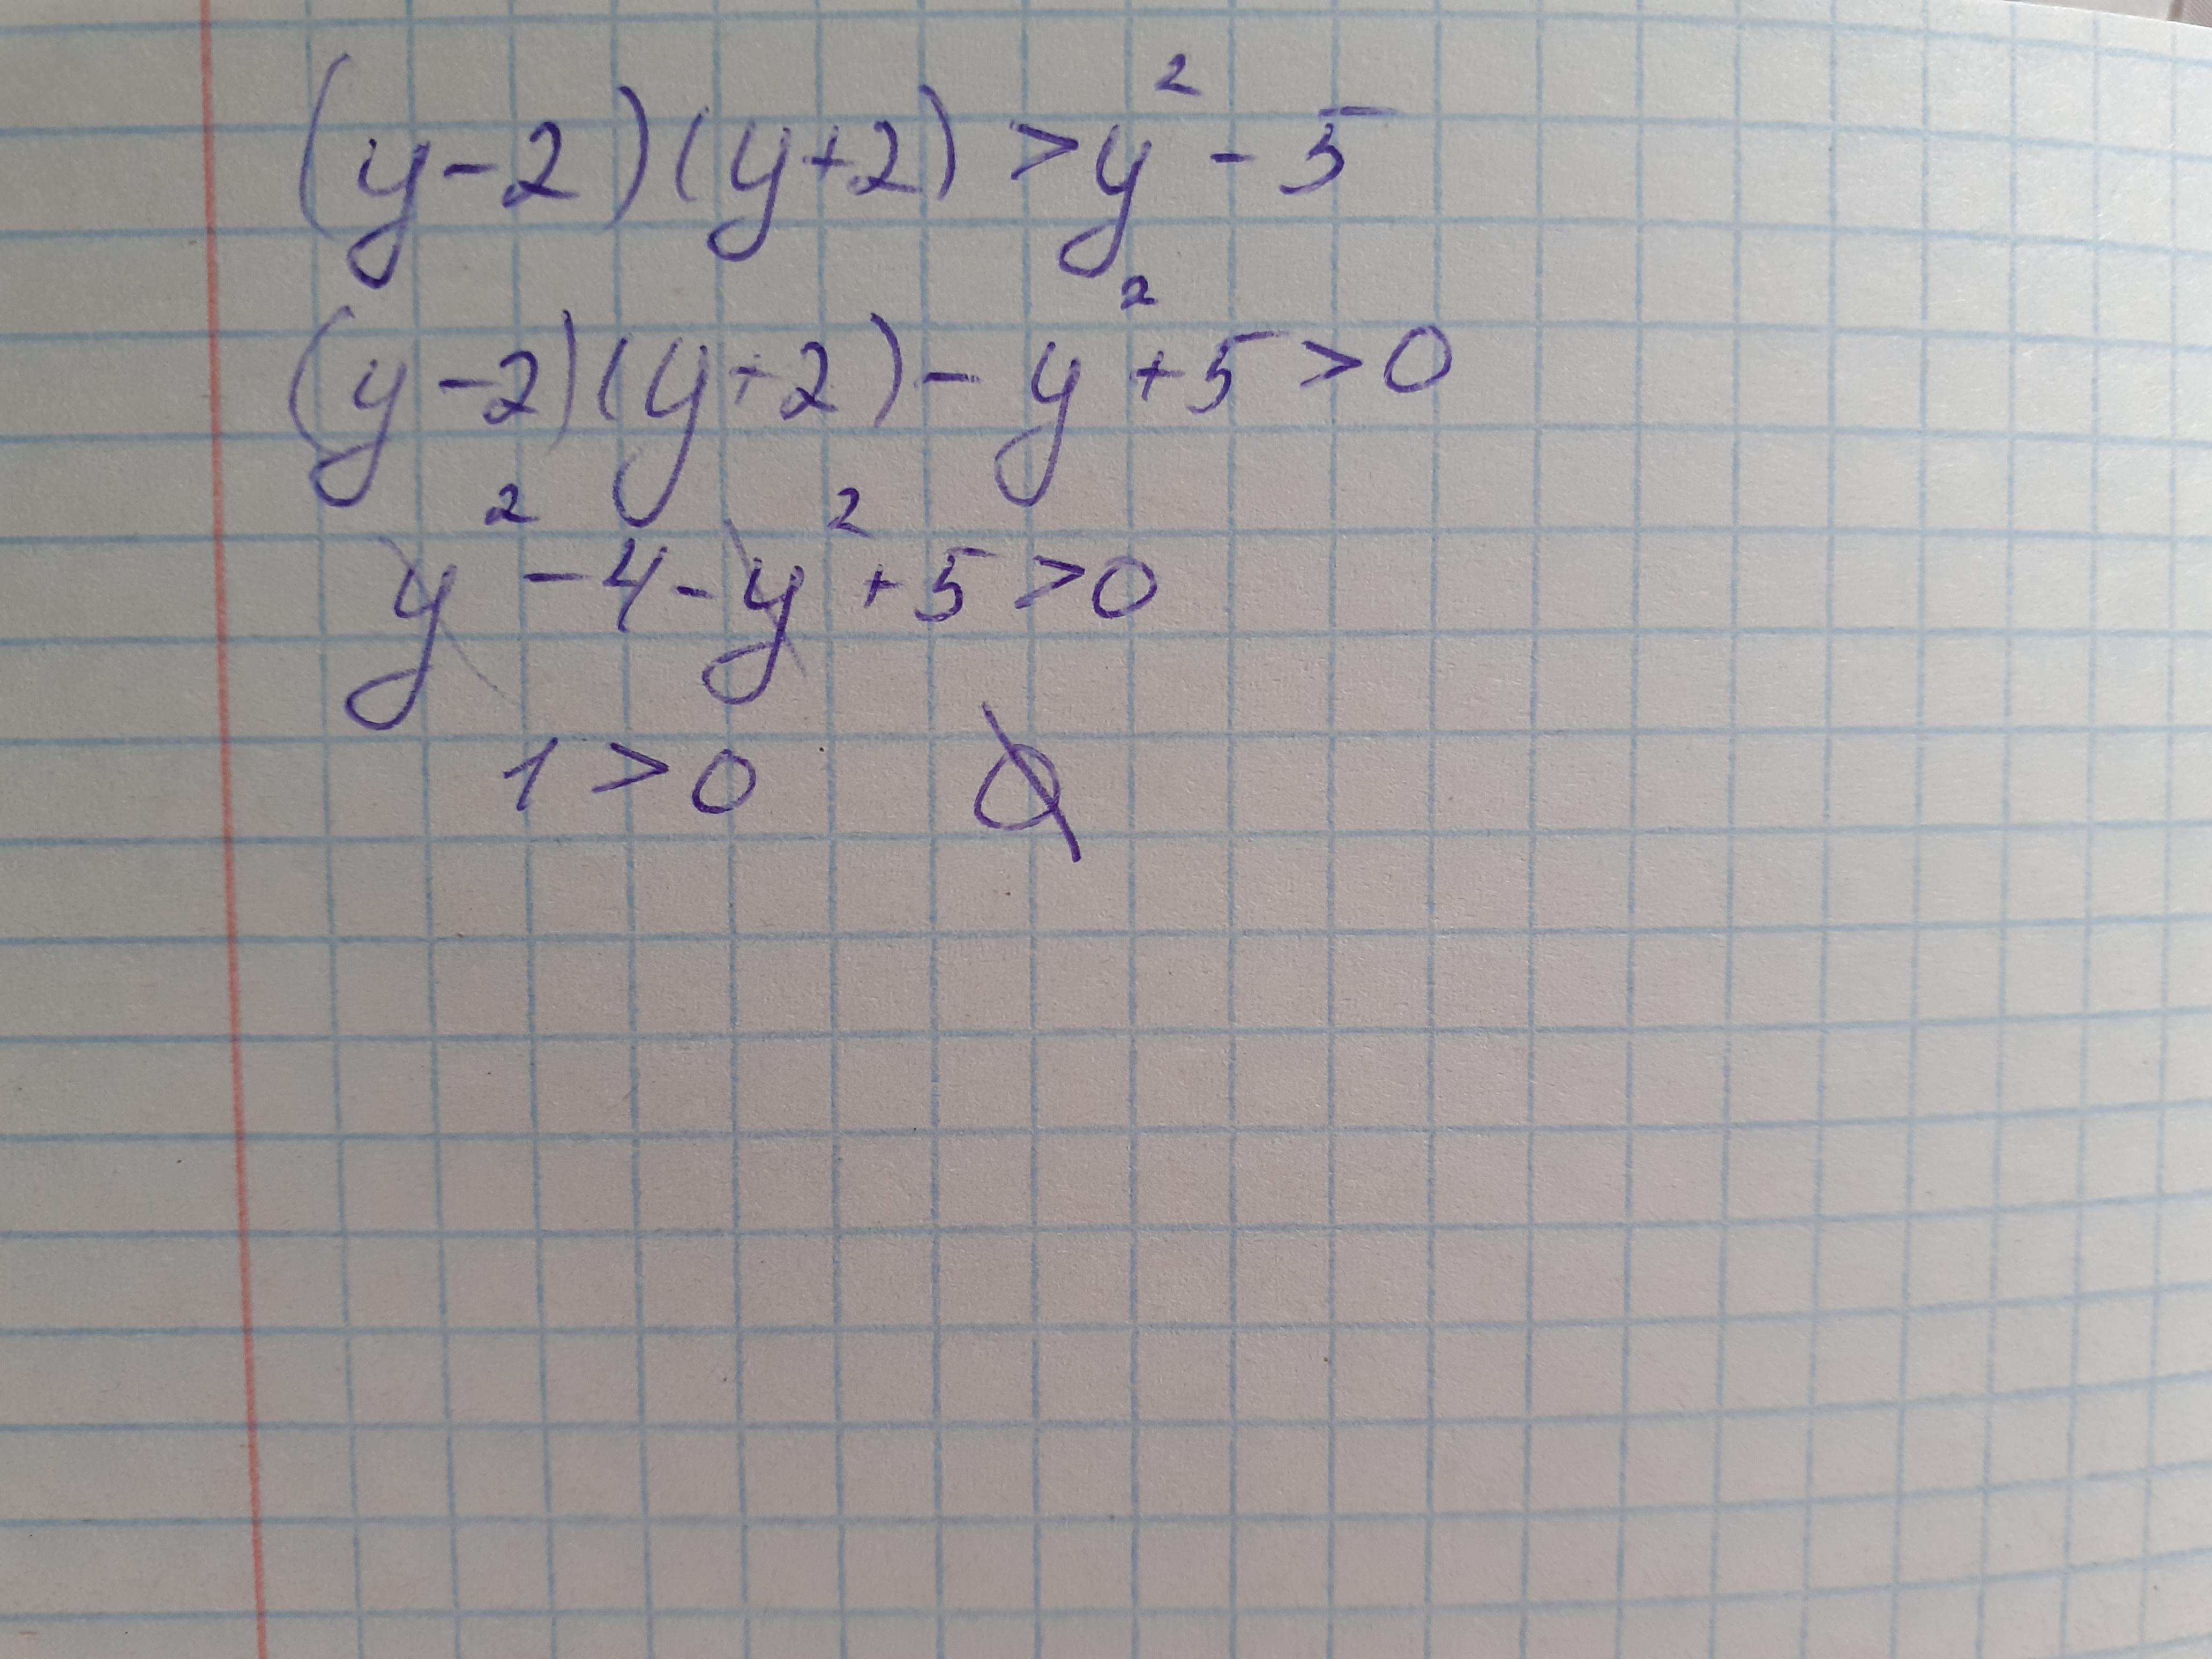 (y-2)(y+2) > y² - 5
(y-2)(y+2) - y² + 5 > 0
y² - 4 - y² + 5 > 0
1 > 0 ∅